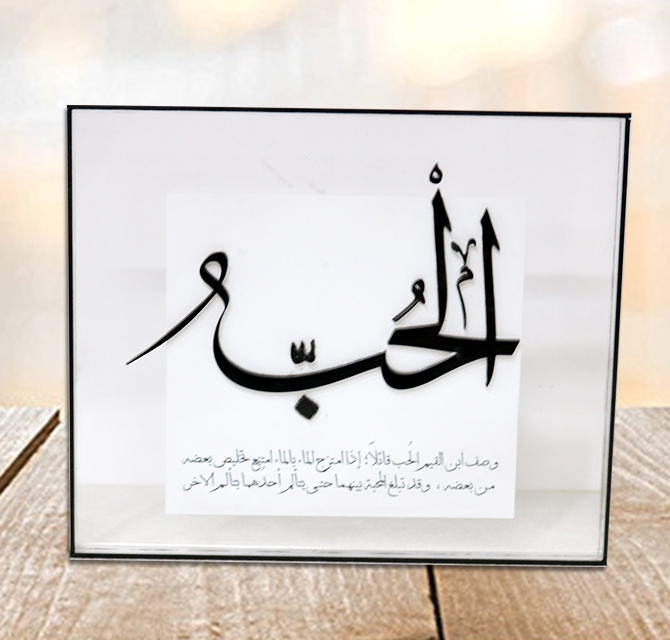 الْحُبّ
وصف ابن القيم الحُب قائلاً: إذا امتزج الماء بالماء امتنع تخليص بعضه
من بعضه، وقد تبلغ المحبة بينهما حتى يتألم أحدهما بتألم الآخر